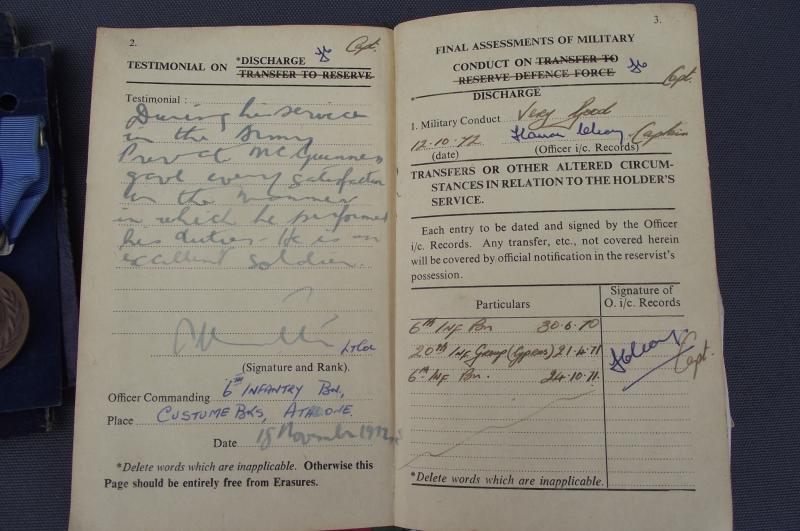 2.
TESTIMONIAL ON *DISCHARGE Capt.
TRANSFER TO RESERVE
Testimonial :
During his service
in the Army
Prev at McGuinness
gave every satisfaction
in the manner
in which he performed
his duties. He is an
excellent soldier.
Lt Col
(Signature and Rank).
Officer Commanding 6TH INFANTRY BN,
Place CUSTUME BKS, ATHLONE.
Date 18 November 1972
*Delete words which are inapplicable. Otherwise this
Page should be entirely free from Erasures.
3.
FINAL ASSESSMENTS OF MILITARY
CONDUCT ON TRANSFER TO
RESERVE DEFENCE FORCE Capt.
* DISCHARGE
1. Military Conduct Very Good
12.10.72 Captain
(date) (Officer i/c. Records)
TRANSFERS OR OTHER ALTERED CIRCUM-
STANCES IN RELATION TO THE HOLDER'S
SERVICE.
Each entry to be dated and signed by the Officer
i/c. Records. Any transfer, etc., not covered herein
will be covered by official notification in the reservist's
possession.
Particulars
Signature of
O. i/c. Records
6th Inf Bn 30.6.70
20th Inf Group (Cyprus) 21.4.71
6th Inf Bn. 24.10.71
Capt.
*Delete words which are inapplicable.